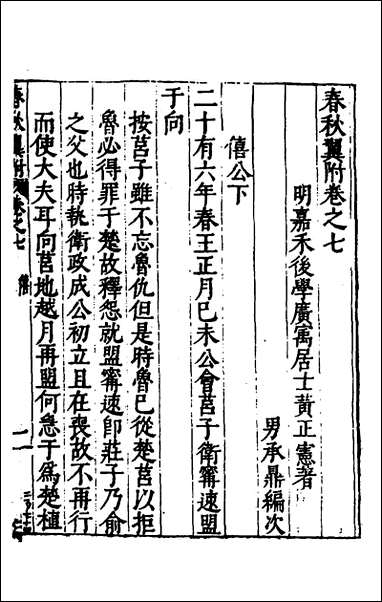 春秋翼附卷之七
明嘉禾後學廣寓居士黃正憲著
男承鼎編次
僖公下
二十有六年春王正月己未公會莒子衛甯速盟
于向
按莒子雖不忘魯仇但是時魯已從楚莒以拒
魯必得罪于楚故釋怨就盟甯速即莊子乃俞
之父也時執衛政成公初立且在喪故不再行
而使大夫耳向莒地越月再盟何急于為楚植
春秋翼附 卷之七
一